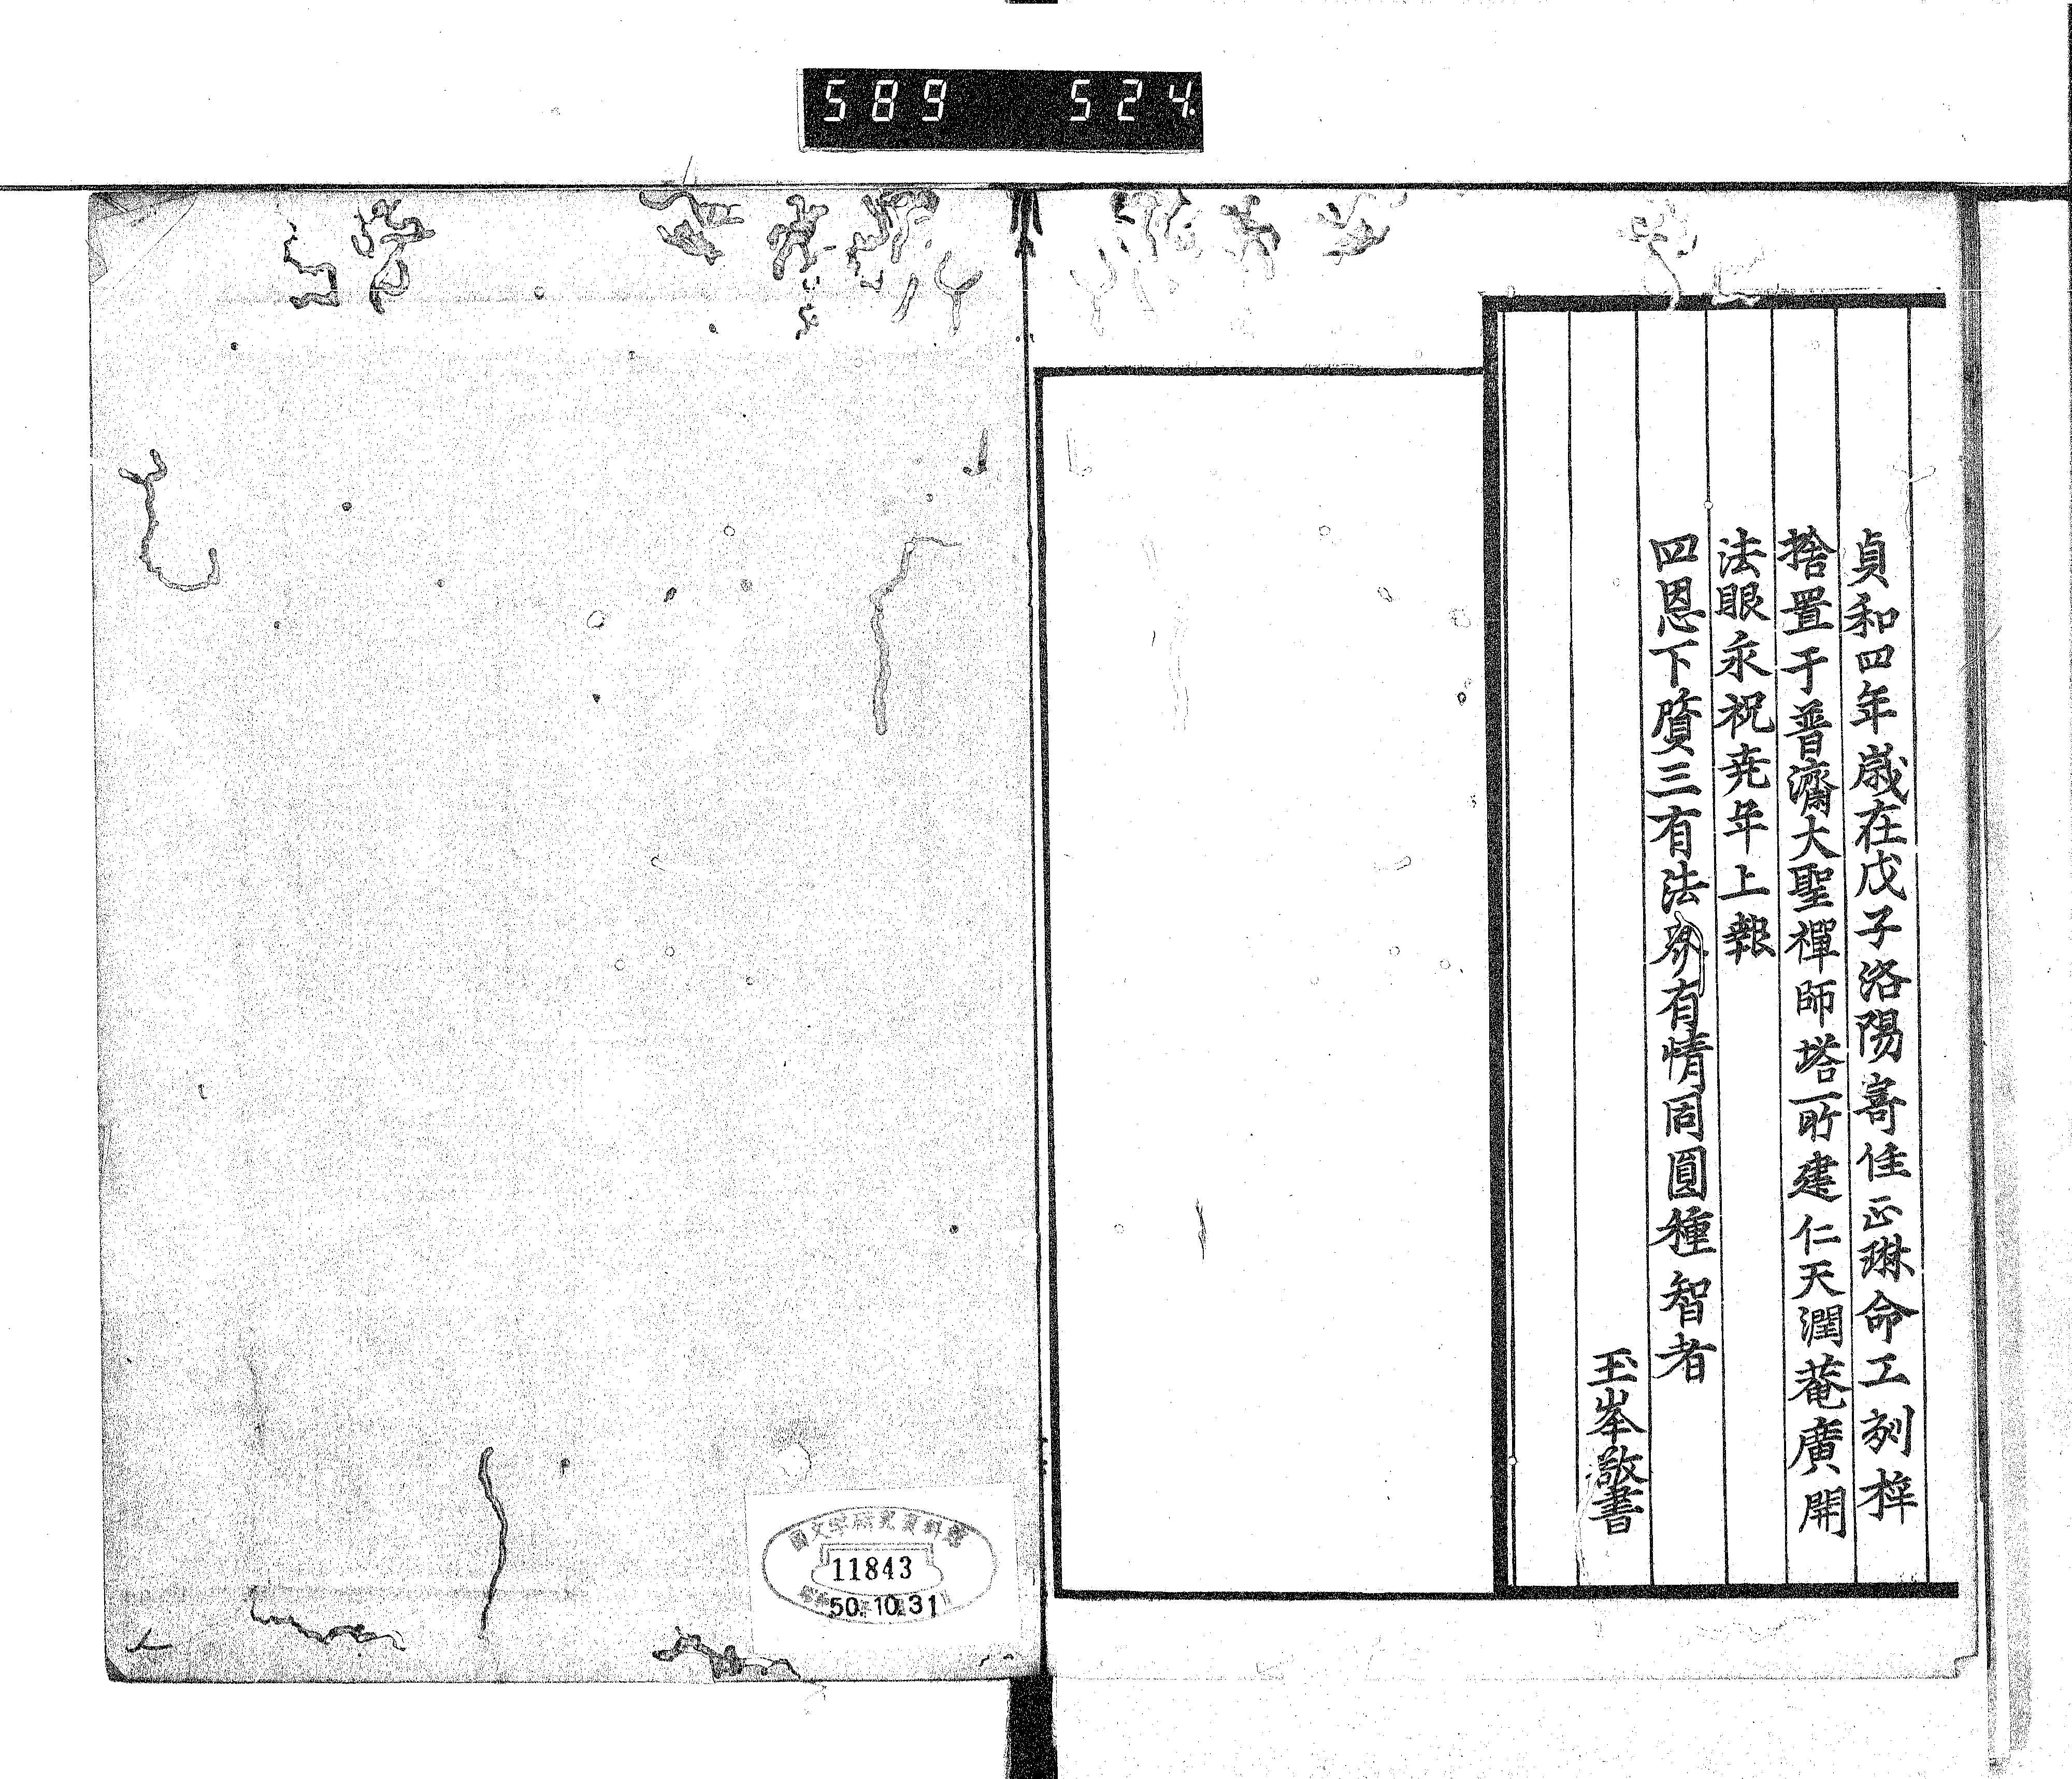 589 524
貞和四年歲在戊子洛陽寄住正琳命工刻梓
捨置于普濟大聖禪師塔所建仁天潤菴廣開
法眼永祝堯年上報
四恩下資三有法界有情同圓種智者
玉峯敬書
國文学研究資料館
11843
50.10.31